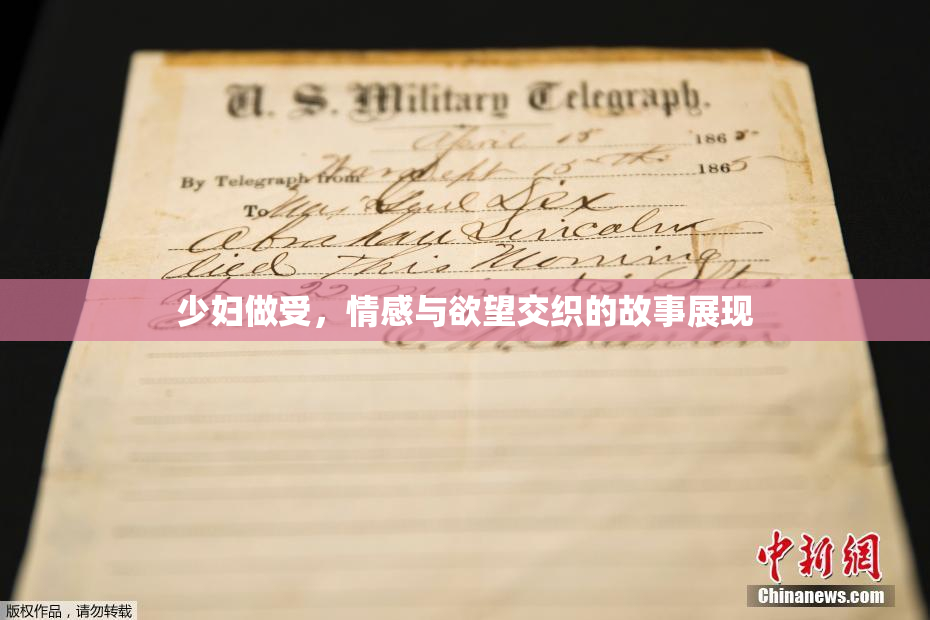 U. S. Military Telegraph.
April 15 1865
By Telegraph from War Dept 15th 1865
To Maj Genl Dix
Abraham Lincoln
died This Morning
少妇做受，情感与欲望交织的故事展现
中新网
Chinanews.com
版权作品，请勿转载